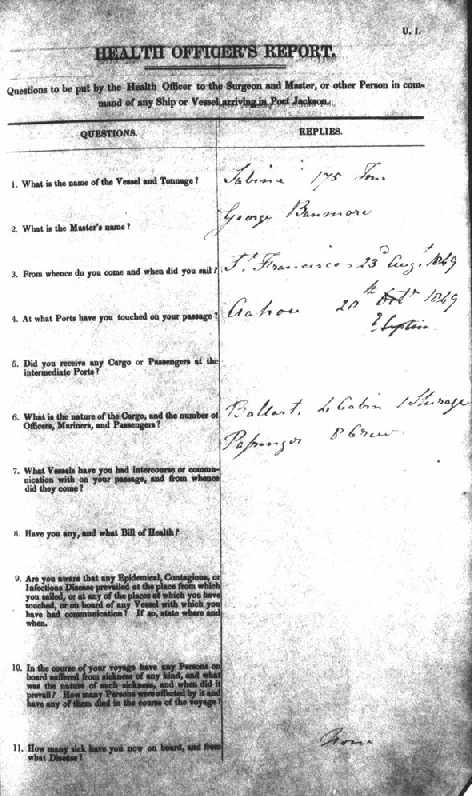 U. 1.
HEALTH OFFICER'S REPORT.
Questions to be put by the Health Officer to the Surgeon and Master, or other Person in com-
mand of any Ship or Vessel arriving in Port Jackson.
QUESTIONS.
REPLIES.
1. What is the name of the Vessel and Tonnage?
Sabina 175 Tons
2. What is the Master's name?
George
3. From whence do you come and when did you sail?
St Francisco 23d Augt 1849
4. At what Ports have you touched on your passage?
20th Octr 1849
? Septr
5. Did you receive any Cargo or Passengers at the
intermediate Ports?
6. What is the nature of the Cargo, and the number of
Officers, Mariners, and Passengers?
Ballast. 4 Cabin 1 Steerage
Passenger 8 Crew
7. What Vessels have you had Intercourse or commu-
nication with on your passage, and from whence
did they come?
8. Have you any, and what Bill of Health?
9. Are you aware that any Epidemical, Contagious, or
Infectious Disease prevailed at the place from which
you sailed, or at any of the places at which you have
touched, or on board of any Vessel with which you
have had communication? If so, state where and
when.
10. In the course of your voyage have any Persons on
board suffered from sickness of any kind, and what
was the nature of such sickness, and when did it
prevail? How many Persons were affected by it and
have any of them died in the course of the voyage?
11. How many sick have you now on board, and from
what Disease?
None